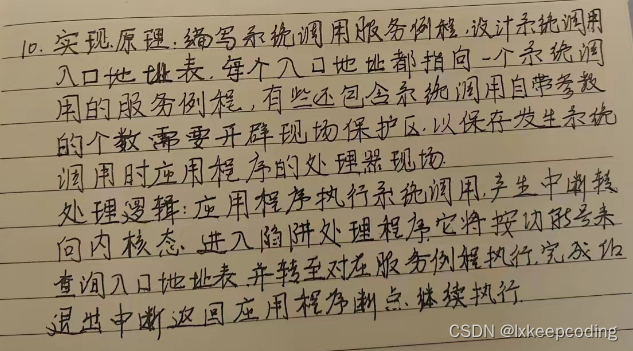 10. 实现原理:编写系统调用服务例程.设计系统调用
入口地址表,每个入口地址都指向一个系统调
用的服务例程,有些还包含系统调用自带参数
的个数需要开辟现场保护区.以保存发生系统
调用时应用程序的处理器现场.
处理逻辑:应用程序执行系统调用,产生中断转
向内核态 进入陷阱处理程序它将按功能号来
查询入口地址表 并转至对应服务例程执行,完成后
退出中断返回应用程序断点.继续执行.
CSDN @lxkeepcoding